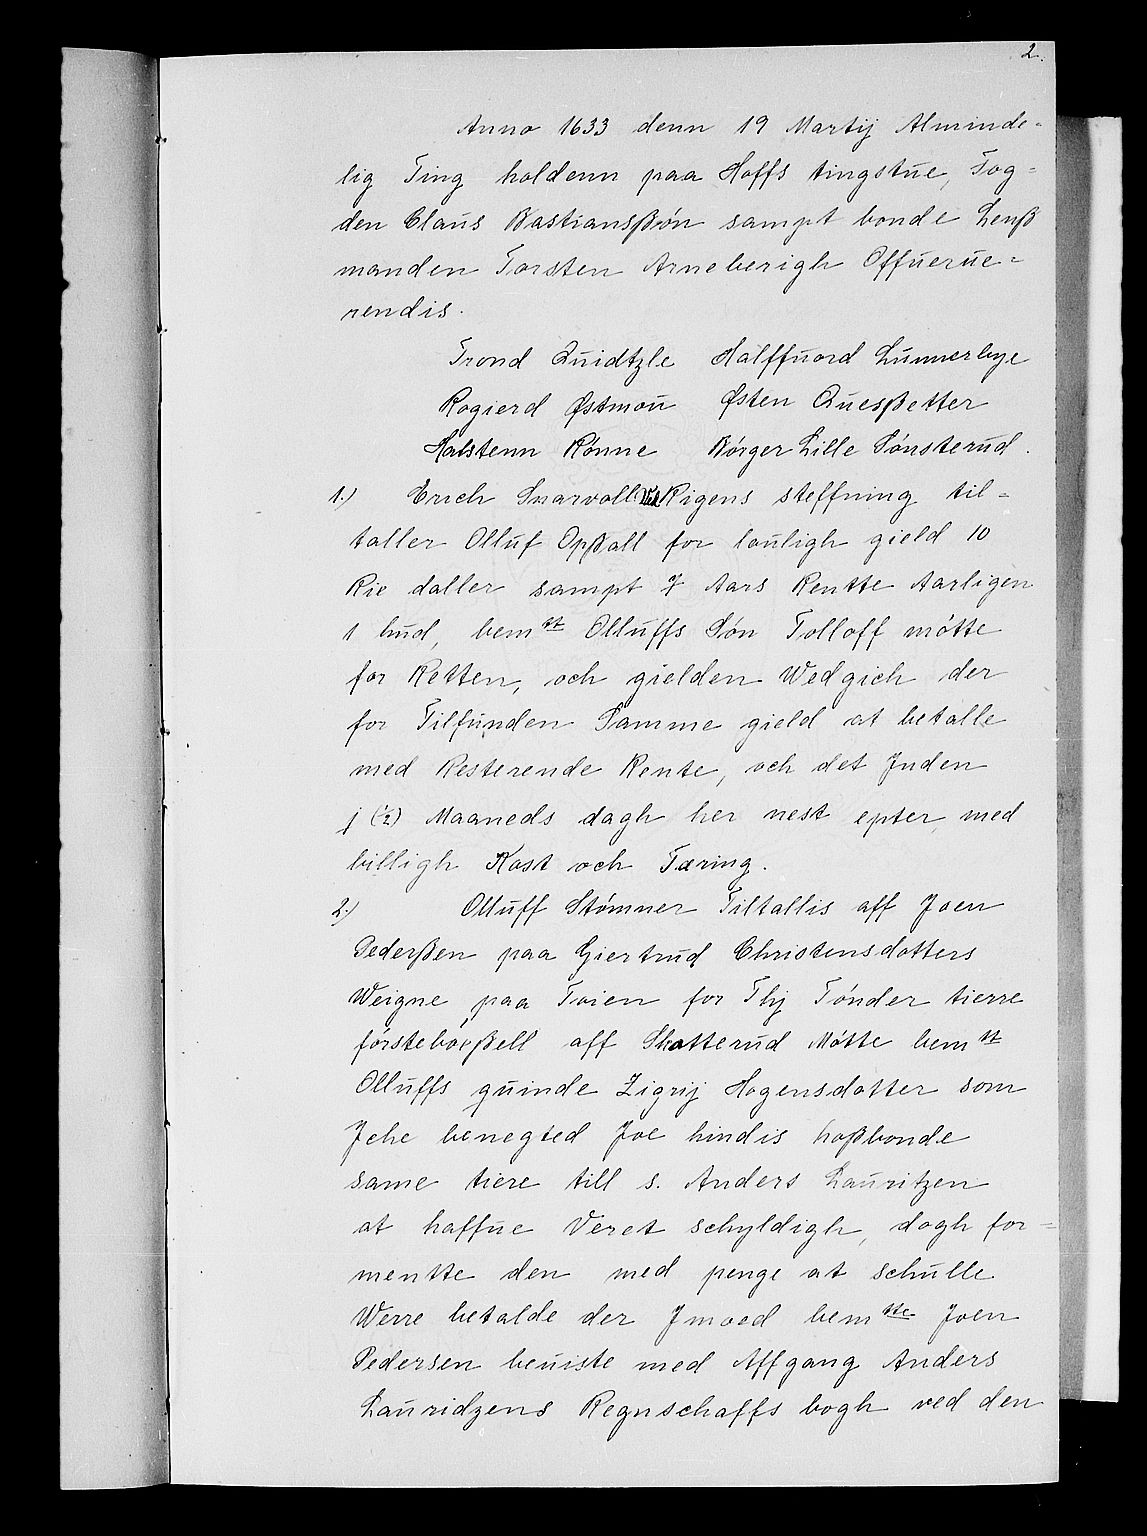 2.
Anno 1633 denn 19 Martij Alminde=
lig Ting holdenn paa Hoffs tingstue, Fog=
den Claus Bastiansßøn sampt bonde Lenß
manden Torsten Arneberigh Offuerue=
rendis.
Trond Quidtzle Halffuord Lunnerbye
Rogierd Østmou Østen Quesßetter
Halstenn Rønne Børger Lille Sønsterud.
1.) Erich Snarvoll Ved Rigens steffning til=
taller Olluf Opßall for louligh gield 10
Rie daller sampt 7 Aars Rentte Aarligen
1 hud, bemtt Olluffs Søn Tolloff møtte
for Retten, och gielden Wedgich der
for Tilfunden Samme gield at betalle
med Resterende Rente, och det Jnden
j (½) Maaneds dagh her nest epter, med
billigh Kost och Tæring.
2.) Olluff Stømner Tiltallis aff Joen
Pederßen paa Giertrud Christensdotters
Weigne paa Toien for Thj Tønder tierre
førsteböeßell aff Skotterud Møtte bemtt
Olluffs quinde Zigrij Hogensdotter som
Jche benegted Joe hindis hoßbonde
same tiere till s. Anders Lauritzen
at haffue Veret schyldigh, dogh for=
mentte den med penge at schulle
Werre betalde der Jmoed bemtte Joen
Pedersen beuiste med Affgang Anders
Lauridzens Regnschaffs bogh ved den